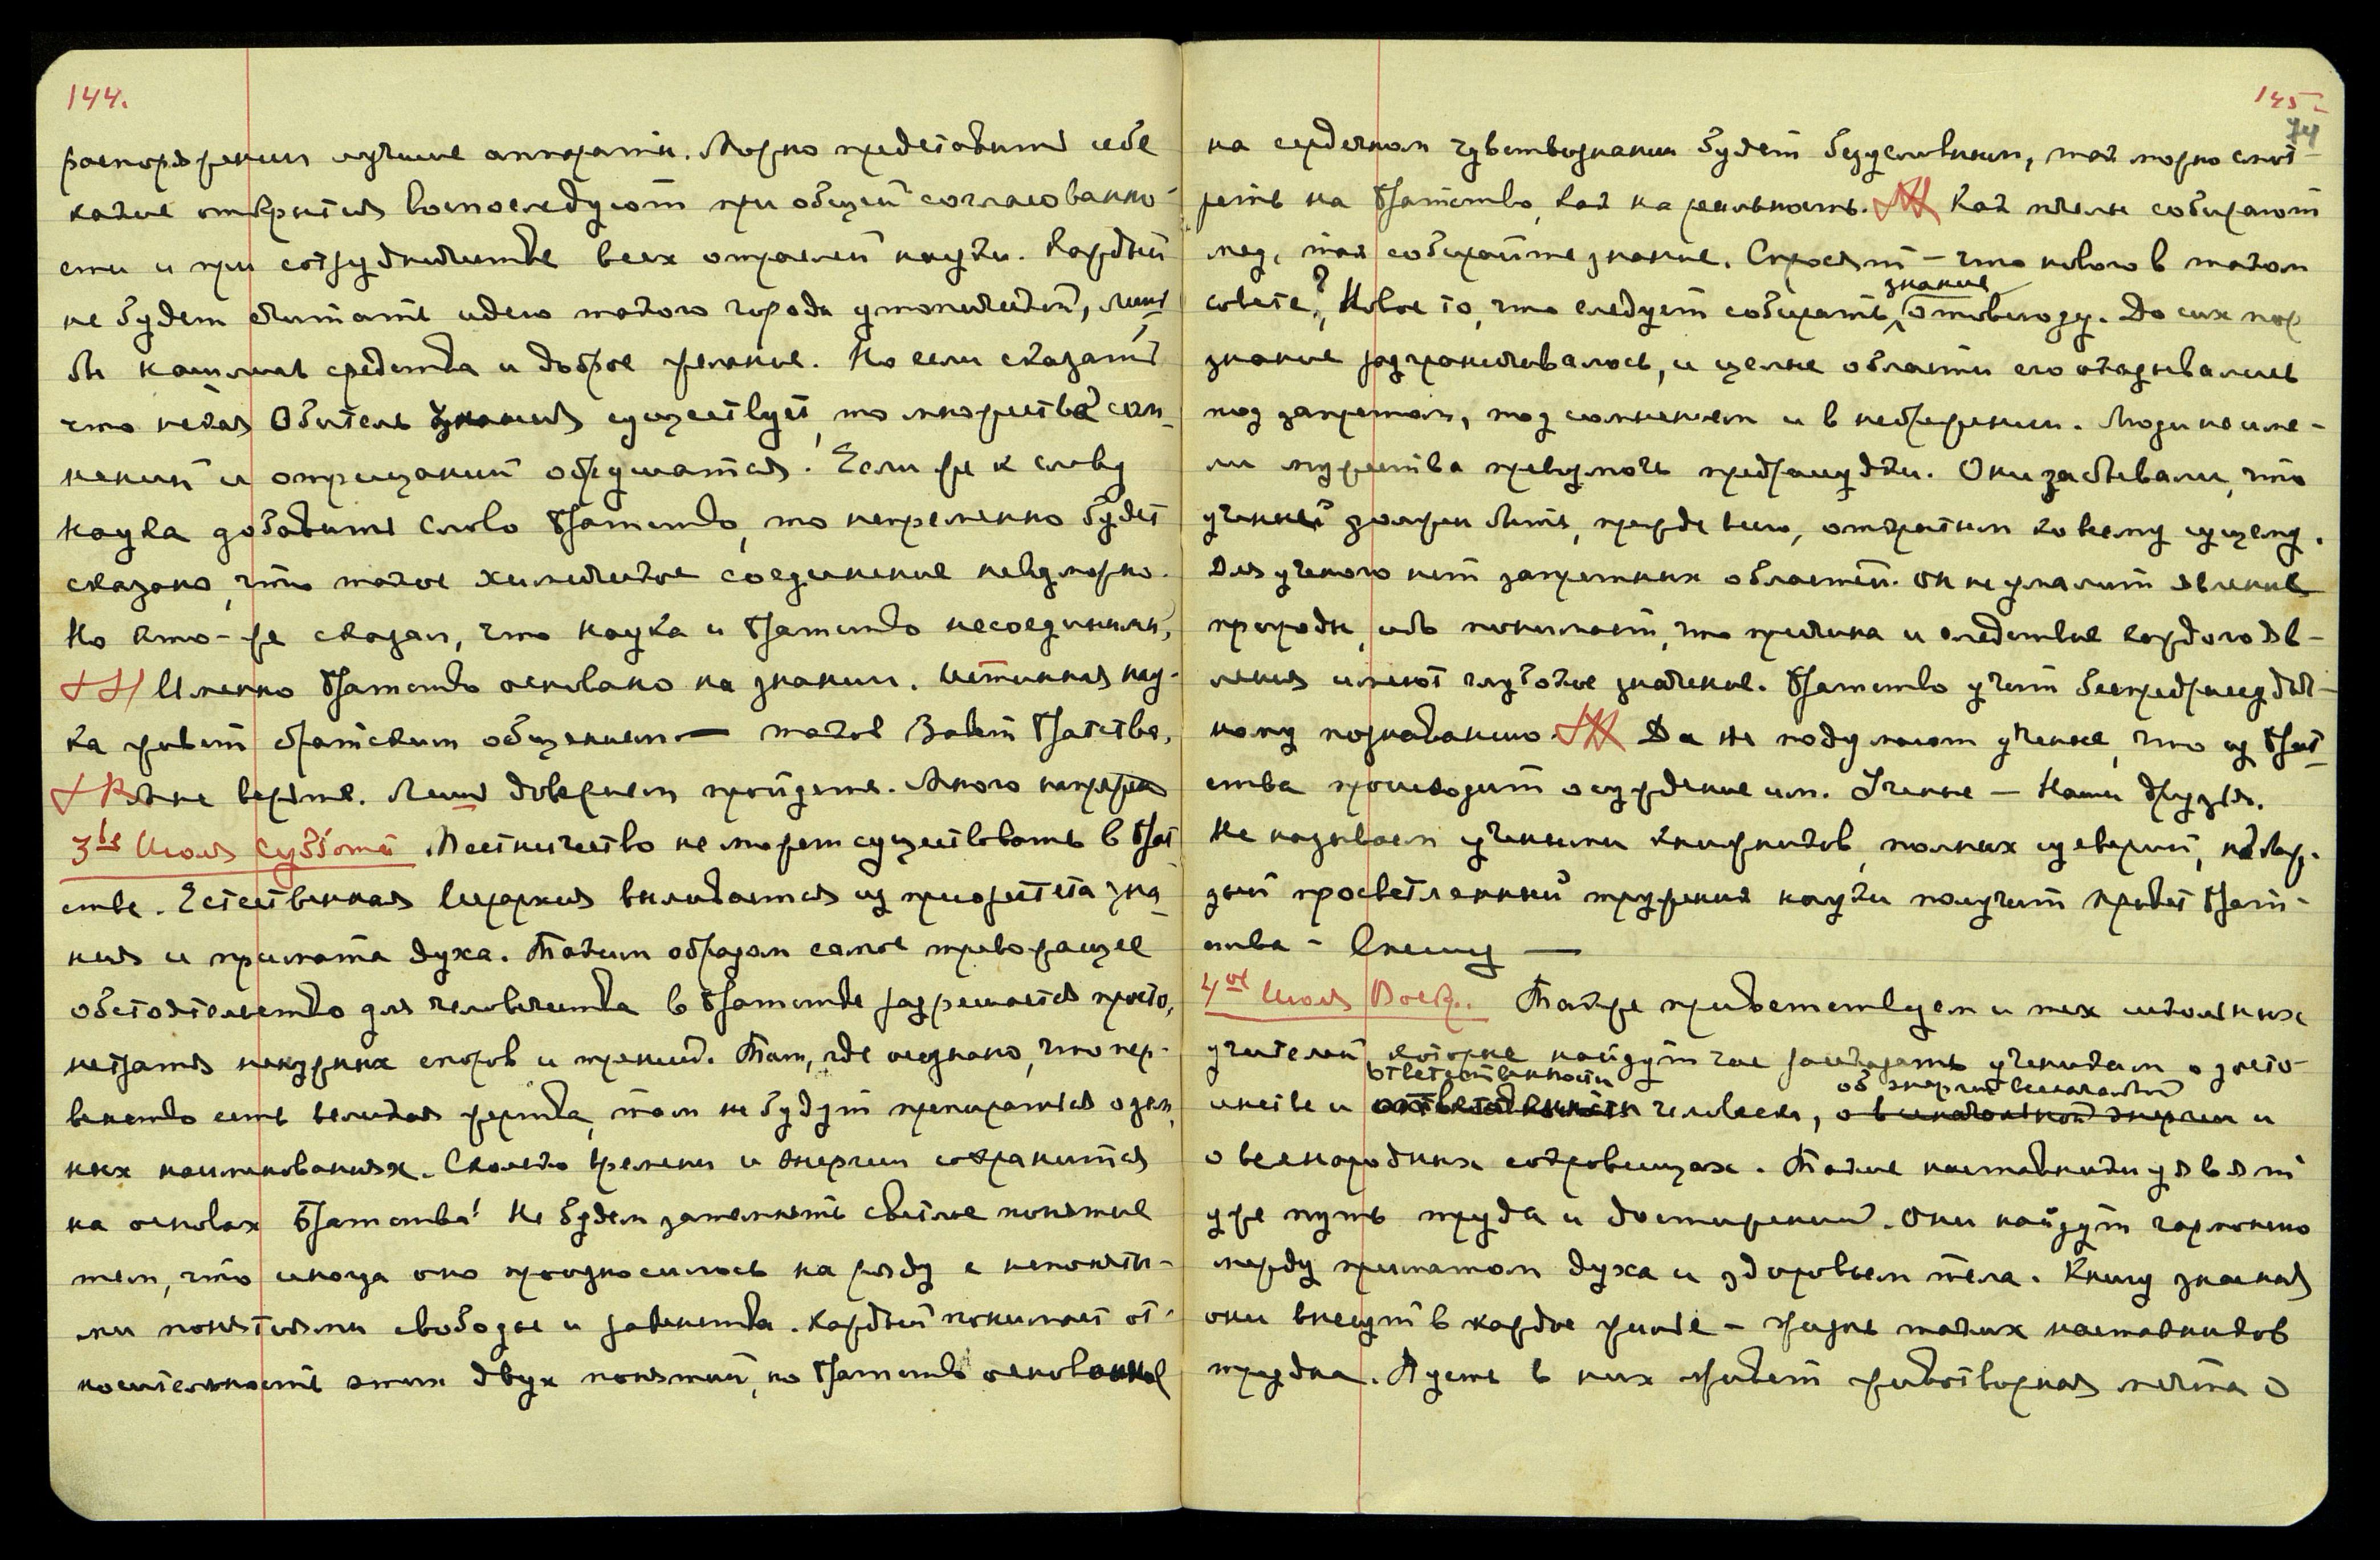 144.
распоряжении лучшие аппараты. Можно представить себе
какие открытия воспоследуют при общей согласованно-
сти и при сотрудничестве всех отраслей науки. Каждый
не будет считать идею такого города утопической, лишь
бы нашлись средства и доброе желание. Но если сказать
что некая Обитель Знания существует, то множество сом-
нений и отрицаний обрушатся. Если же к слову
наука добавить слово Братство, то непременно будет
сказано, что такое химическое соединение невозможно.
Но кто-же сказал, что наука и Братство несоединимы,
Именно Братство основано на знании. Истинная нау-
ка живет братским общением — таков Завет Братства.
Мне верьте. Лишь доверием пройдете. Много напряж
3ье Июля суббота. Местничество не может существовать в Брат
стве. Естественная Иерархия выливается из приоритета зна
ния и примата духа. Таким образом самое тревожащее
обстоятельство для человечества в Братстве разрешается просто,
нет места ненужных споров и трений. Там, где осознано, что пер-
венство есть великая жертва, там не будут препираться о зем,
ных наименованиях. Сколько времени и энергии сохранится
на основах Братства! Не будем затемнять светлое понятие
тем, что иногда оно произносилось на ряду с непоняты-
ми понятиями свободы и равенства. Каждый понимает от-
носительность этих двух понятий, но Братство основанное
145
74
на сердечном чувствознании будет безусловным, так можно смот-
реть на Братство, как на реальность. Как пчелы собирают
мед, так собирайте знание. Спросят - что нового в таком
совете? Новое то, что следует собирать знание отовсюду. До сих пор
знание разграничивалось, и целые области его оказывались
под запретом, под сомнением и в небрежении. Люди не име-
ли мужества превозмочь предрассудки. Они забывали, что
ученый должен быть, прежде всего, открытым ко всему сущему.
Для ученого нет запретных областей. Он не умалит явление
природы, ибо понимает, что причина и следствие каждого яв-
ления имеют глубокое значение. Братство учит беспредрассудоч-
ному познаванию Да не подумают ученые, что из Брат
ства происходит осуждение им. Ученые — Наши друзья.
Не называем учеными книжников, полных суеверий, но каж.
дый просветленный труженик науки получит привет Брат-
ства - Спешу —
4ое Июля Воскр. Также приветствуем и тех школьных
учителей, которые найдут час рассказать ученикам о досто-
инстве и ответственности человека, об энергии всеначальной и
о всенародных сокровищах. Такие наставники уявят
уже путь труда и достижений. Они найдут гармонию
между приматом духа и здоровьем тела. Книгу знания
они внесут в каждое жилье - жизнь таких наставников
трудна. Пусть в них живет животворная мечта о